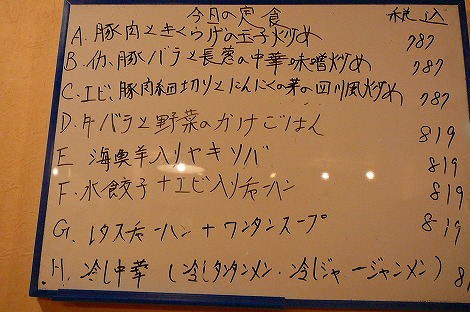 今日の定食 税込
A. 豚肉ときくらげの玉子炒め 787
B. 豚バラと長葱の中華味噌炒め 787
C. エビ、豚肉細切りとにんにくの芽の四川風炒め 787
D. 牛バラと野菜のかけごはん 819
E 海鮮入りヤキソバ 819
F. 水餃子+エビ入りチャーハン 819
G. レタスチャーハン+ワンタンスープ 819
H. 冷し中華 (冷しタンタンメン・冷しジャージャンメン)